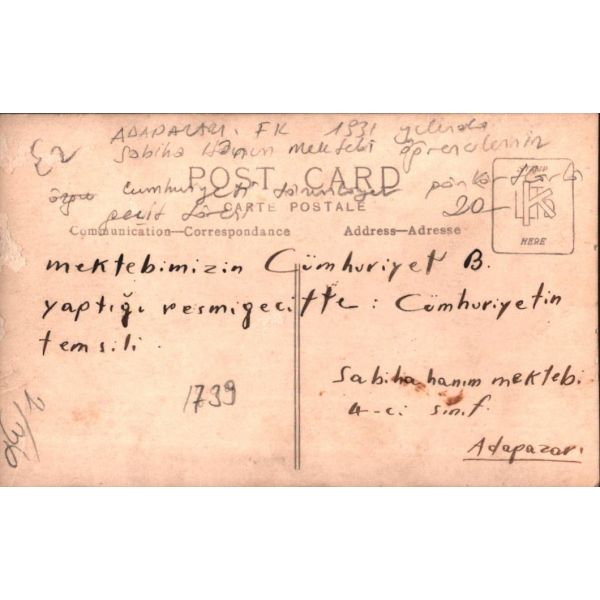 ADAPAZARI. FK 1931 yılında
Sabiha Hanım mektebi öğrencilerinin
POST CARD
Cumhuriyeti
20-
CARTE POSTALE
geçit töreni
Communication—Correspondance
Address—Adresse
STAMP
HERE
mektebimizin Cümhuriyet B.
yaptığı resmigeçitte: Cümhuriyetin
temsili.
1739
Sabiha hanım mektebi
4-ci sınıf
Adapazarı